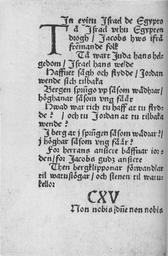 In exitu Israel de Egypto
TA Israel vthu Egypten
droogh / Jacobs hws ifrå
frēmande folk
Tå wart Juda hans hel-
gedom / Israel hans welde
Haffuet sågh och flydde / Jordan
wende sich tilbaka
Bergen spūgo vp såsom wädhar /
höghanar såsom vng fåår
Hwad war tich tu haff at tu flyd-
de ? / och tu Jordan at tu tilbaka
wende ?
I berg at j spūgen såsom wädhar / j
höghar såsom vng fåår ?
For herrans ansicte bäffuar ior-
den / for Jacobs gudz ansicte
Then bergklipponar förwandlar
til watusiögar / och stenen til watu-
kellor
CXV
Non nobis dñe non nobis